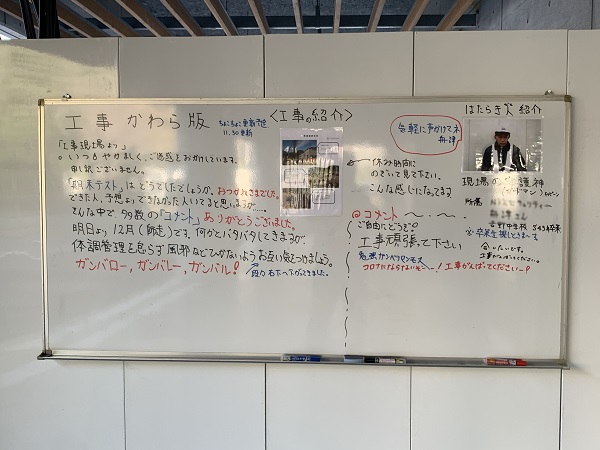 工事 かわら版
ちょこちょこ更新予定
11.30 更新
「工事現場より」
。いつもやかましく、ご迷惑をおかけしています。
申し訳ございません。
「期末テスト」はどうでしたでしょうか。おつかれさまでした。
できた人、予想よりできなかった人いてると思いますが…
そんな中で、多数の「コメント」ありがとうございました。
明日より、12月(師走)です。何かとバタバタしてきますが、
体調管理を怠らず風邪などひかないようお互い気をつけましょう。
ガンバロー，ガンバレー，ガンバル！
段々右下へ下がってきました。
〈工事の紹介〉
休み時間に
のぞいて見て下さい。
こんな感じになってます
@コメント
ご自由にどうぞ
工事頑張て下さい
コロナにならないでー！工事がんばってくださいーP
はたらき人紹介
気軽に声かけてネ
現場の守護神
(ガードマン)
所属
卒業生探してきま〜す
会いたいです。